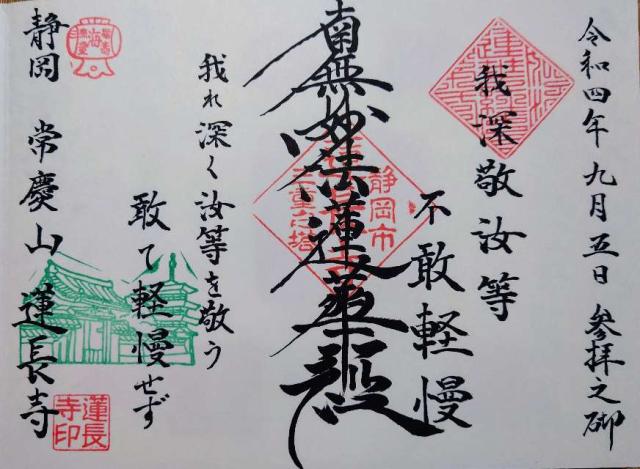 令和四年九月五日 参拝之砌
我深敬汝等
不敢軽慢
南無妙法蓮華経
静岡市
三重之塔
我れ深く汝等を敬う
敢て軽慢せず
静岡 常慶山 蓮長寺
蓮長寺印